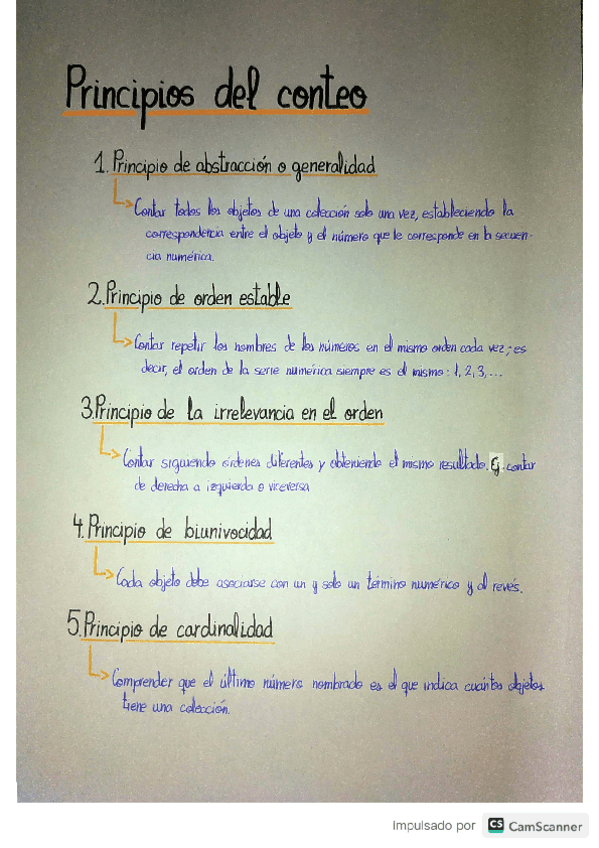 Principios del conteo
1. Principio de abstracción o generalidad
Contar todos los objetos de una colección solo una vez, estableciendo la
correspondencia entre el objeto y el número que le corresponde en la secuen-
cia numérica.
2. Principio de orden estable
Contar repetir los nombres de los números en el mismo orden cada vez; es
decir, el orden de la serie numérica siempre es el mismo: 1, 2, 3, ...
3. Principio de la irrelevancia en el orden
Contar siguiendo órdenes diferentes y obteniendo el mismo resultado. Ej. contar
de derecha a izquierda o viceversa
4. Principio de biunivocidad
Cada objeto debe asociarse con un y solo un término numérico y al revés.
5. Principio de cardinalidad
Comprender que el último número nombrado es el que indica cuántos objetos
tiene una colección.
Impulsado por CS CamScanner